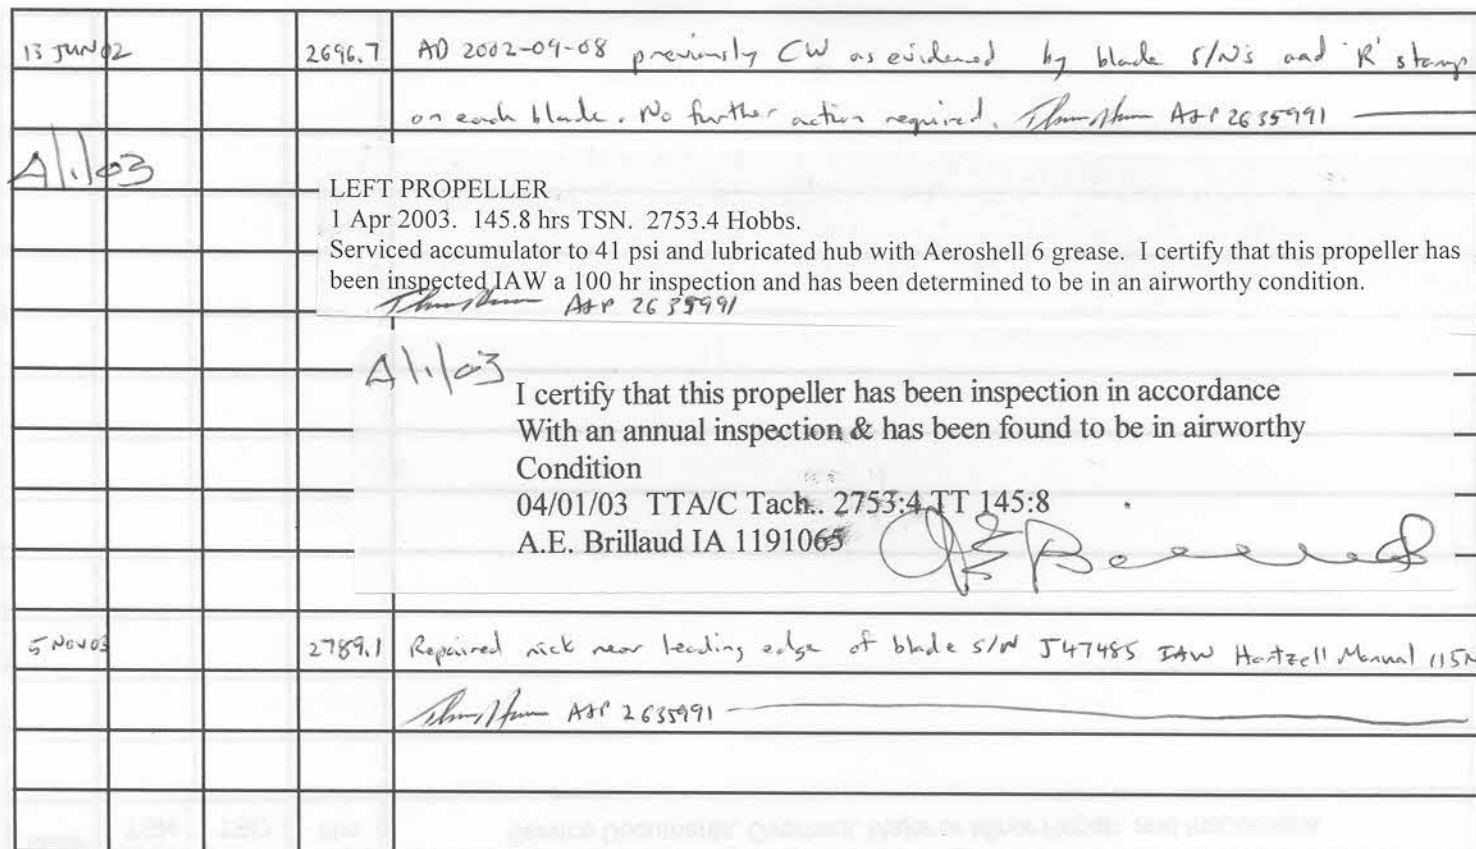 13 JUN 02 2696.7 AD 2002-09-08 previously CW as evidenced by blade S/N's and 'R' stamp
on each blade. No further action required. A&P 2635991
4/1/03
LEFT PROPELLER
1 Apr 2003. 145.8 hrs TSN. 2753.4 Hobbs.
Serviced accumulator to 41 psi and lubricated hub with Aeroshell 6 grease. I certify that this propeller has
been inspected IAW a 100 hr inspection and has been determined to be in an airworthy condition.
A&P 2635991
4/1/03
I certify that this propeller has been inspection in accordance
With an annual inspection & has been found to be in airworthy
Condition
04/01/03 TTA/C Tach.. 2753:4 TT 145:8
A.E. Brillaud IA 1191065
5 NOV 03 2789.1 Repaired nick near leading edge of blade S/N J47485 IAW Hartzell Manual 115N
A&P 2635991
Service Documents, Overhaul, Major or Minor Repair, and Inspections
TSN TSO